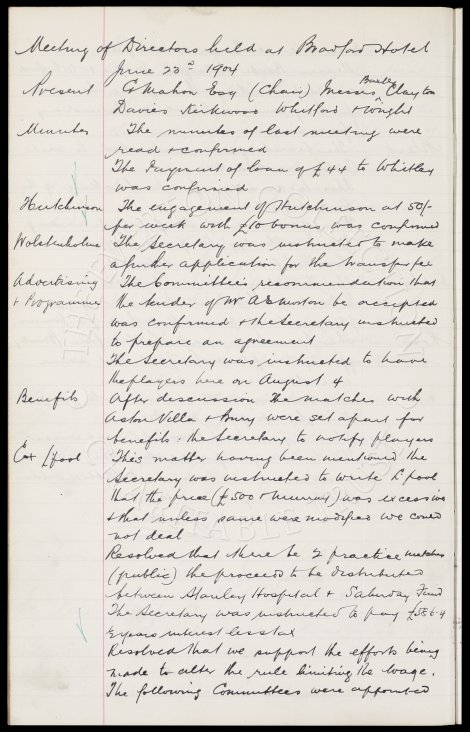 Meeting of Directors held at Bradford Hotel
June 23rd 1904
Present G Mahon Esq (Chair) Messrs Baxter Clayton
Davies Kirkwood Whitford & Wright
Minutes The minutes of last meeting were
read & confirmed
The Payment of loan of £44 to Whitley
was confirmed
Hutchinson The engagement of Hutchinson at 50/-
per week with £10 bonus was confirmed
Wolstenholme The Secretary was instructed to make
a further application for the transfer fee
Advertising The Committee's recommendation that
& Programmes the tender of Mr A E Morton be accepted
was confirmed & the Secretary instructed
to prepare an agreement
The Secretary was instructed to have
the players here on August 4
Benefits After discussion The matches with
Aston Villa & Bury were set apart for
benefits: the Secretary to notify players
L'pool This matter having been mentioned the
Secretary was instructed to write L'pool
that the price (£500 & Murray) was excessive
& that unless same were modified we could
not deal
Resolved that there be 2 practice matches
(public) the proceeds to be distributed
between Stanley Hospital & Saturday Fund
The Secretary was instructed to pay
years interest less tax
Resolved that we support the efforts being
made to alter the rule limiting the wage.
The following Committees were appointed